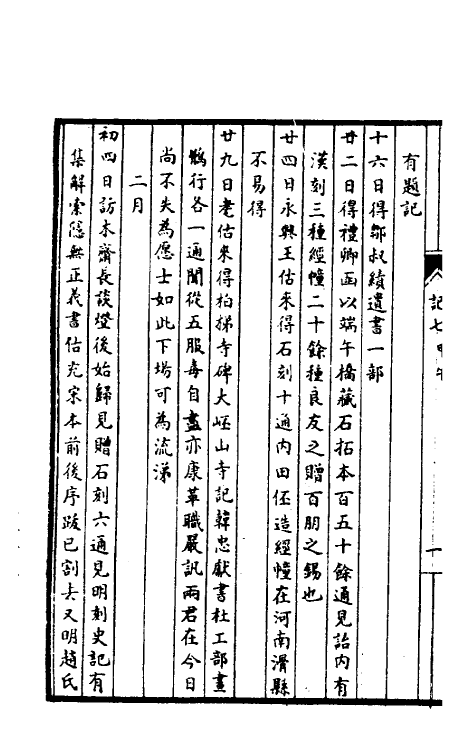 有題記
十六日得鄒叔績遺書一部
廿二日得禮卿函以端午橋藏石拓本百五十餘通見詒內有
漢刻三種經幢二十餘種良友之贈百朋之錫也
廿四日永興王估來得石刻十通內田伾造經幢在河南滑縣
不易得
廿九日老估來得柏梯寺碑大岯山寺記韓忠獻書杜工部畫
鶻行各一通聞從五服毒自盡亦康革職嚴訊兩君在今日
尚不失為愿士如此下場可為流涕
二月
初四日訪木齋長談燈後始歸見贈石刻六通見明刻史記有
集解索隱無正義書估充宋本前後序跋已割去又明趙氏
記七甲午